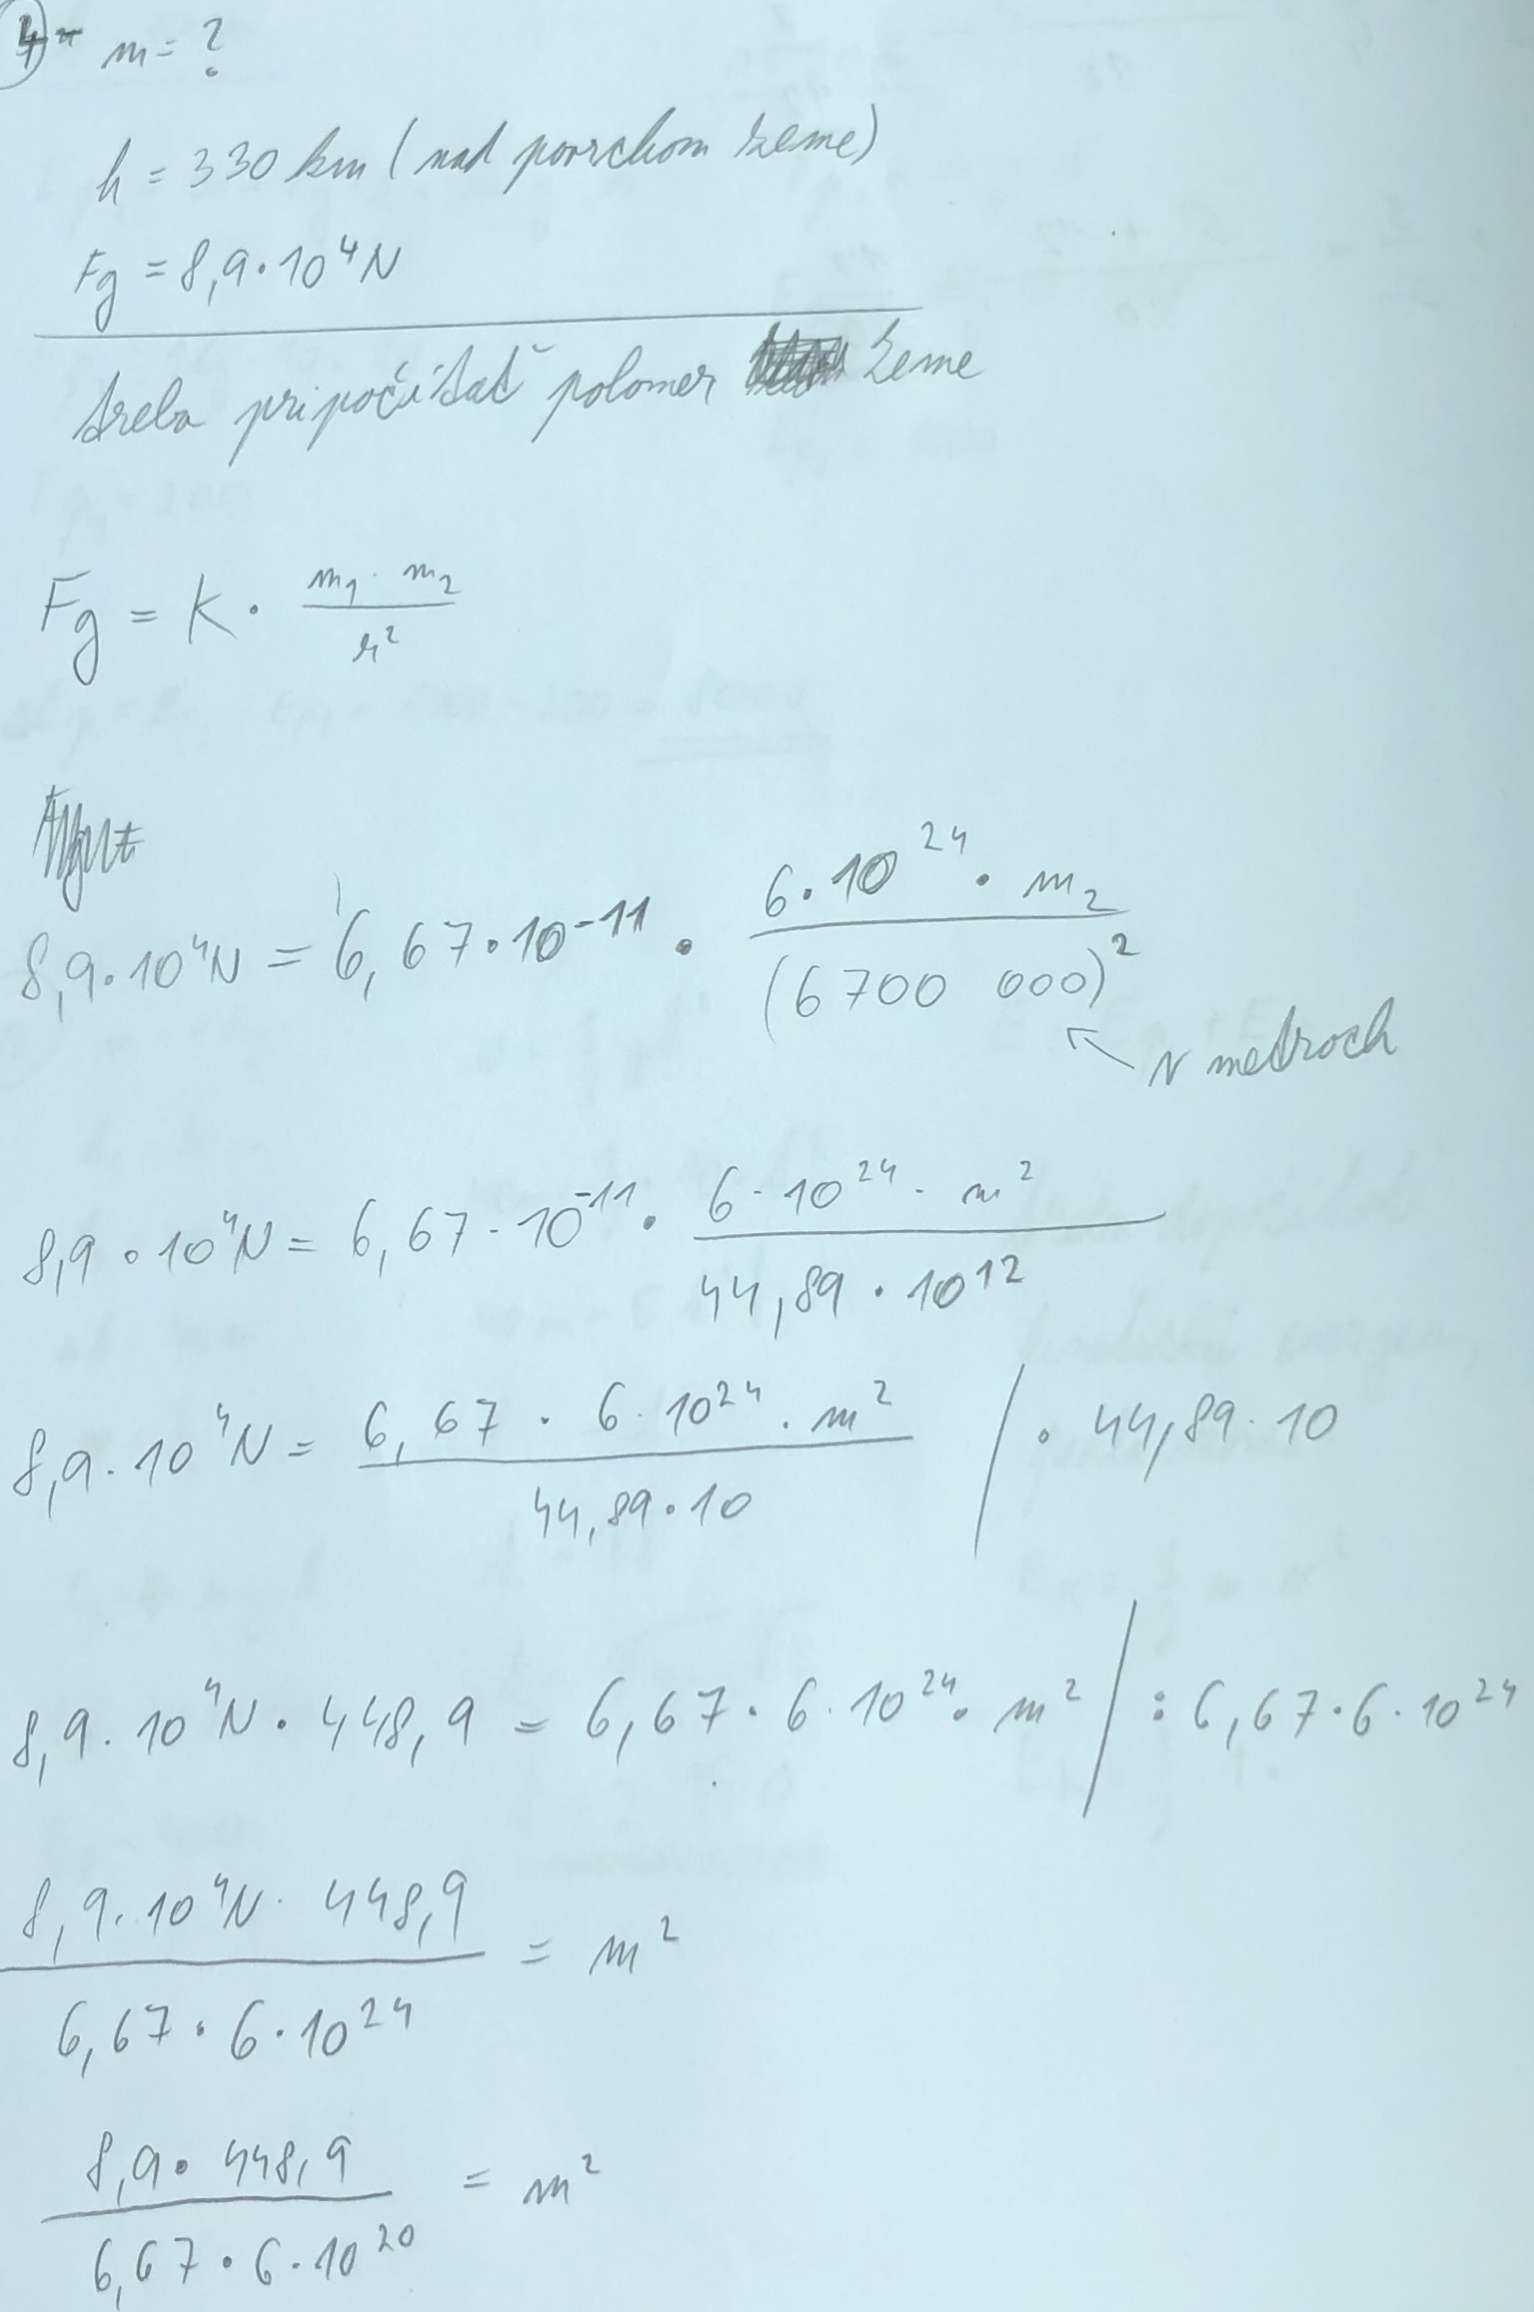 4. m = ?
h = 330 km (nad povrchom zeme)
Fg = 8,9 · 10⁴ N
treba pripočítať polomer zeme
Fg = K · (m₁ · m₂)/r²
8,9 · 10⁴ N = 6,67 · 10⁻¹¹ · (6 · 10²⁴ · m₂)/(6700 000)²
v metroch
8,9 · 10⁴ N = 6,67 · 10⁻¹¹ · (6 · 10²⁴ · m²)/(44,89 · 10¹²)
8,9 · 10⁴ N = (6,67 · 6 · 10²⁴ · m²)/(44,89 · 10) / · 44,89 · 10
8,9 · 10⁴ N · 448,9 = 6,67 · 6 · 10²⁴ · m² / : 6,67 · 6 · 10²⁴
(8,9 · 10⁴ N · 448,9)/(6,67 · 6 · 10²⁴) = m²
(8,9 · 448,9)/(6,67 · 6 · 10²⁰) = m²